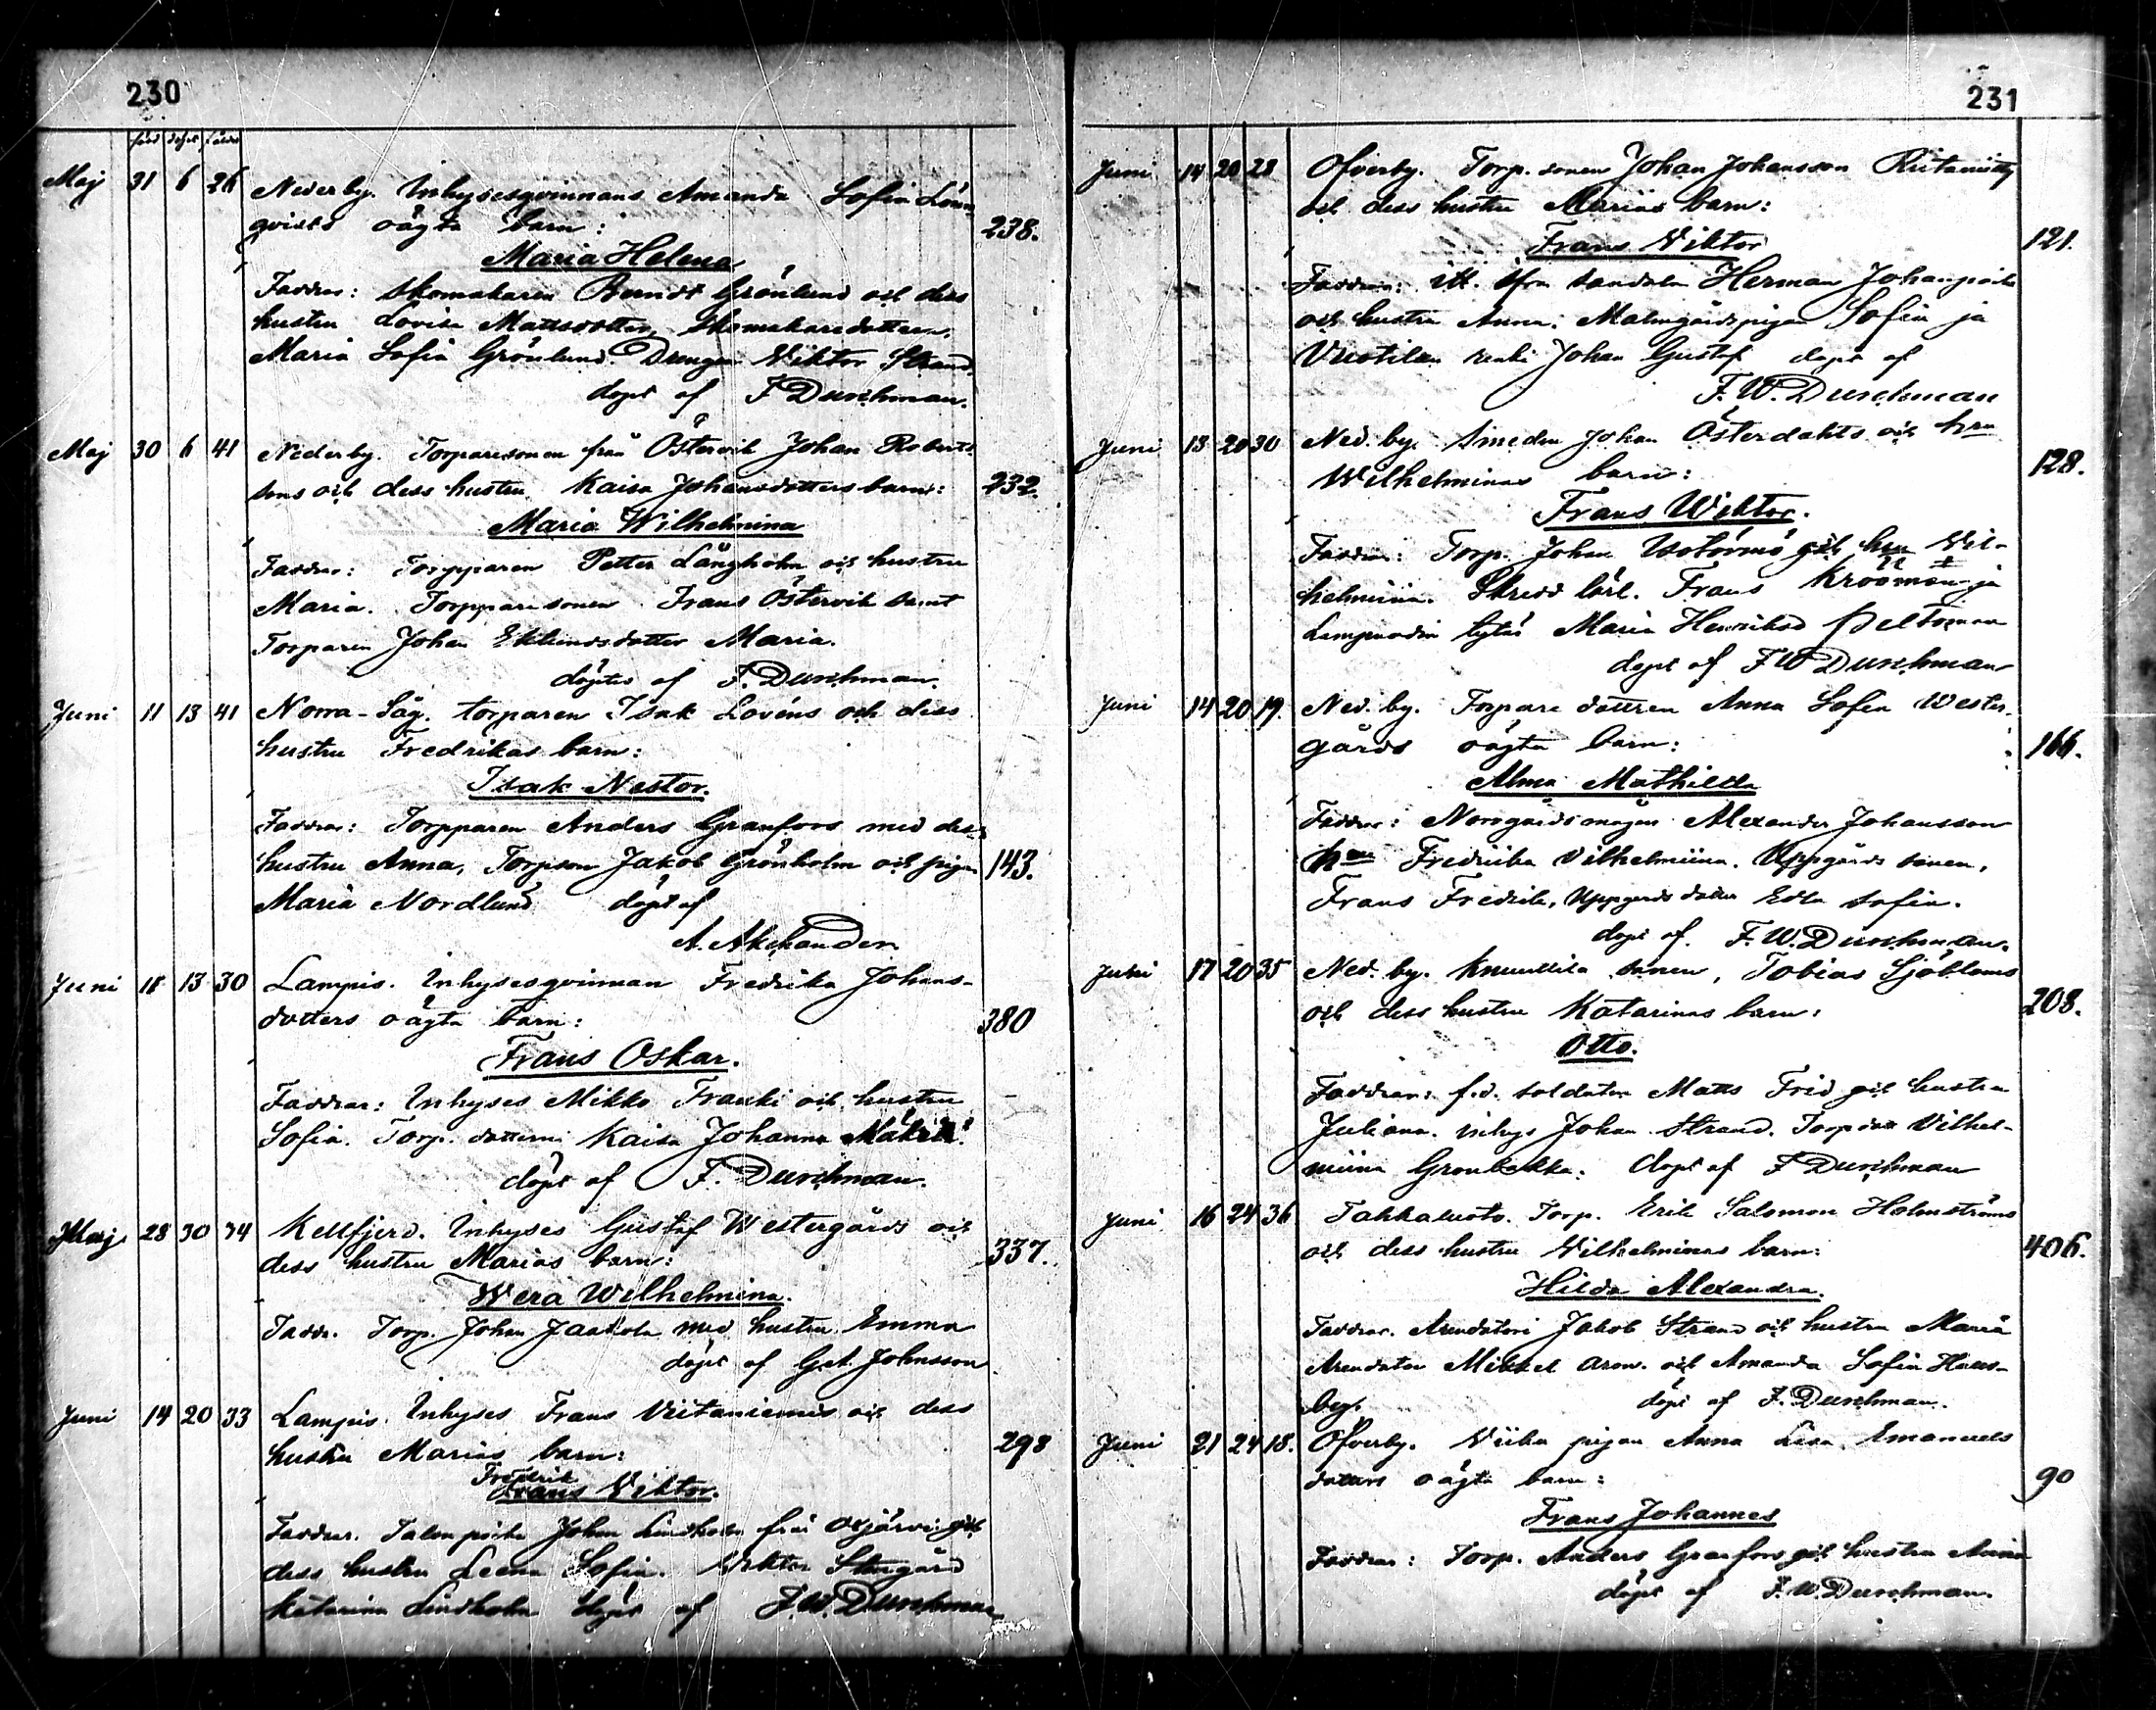 230
född döpt
Maj 31 6 26 Nederby. Inhysesqvinnans Amanda Sofia Lönn-
qvists oägta barn: 238.
Maria Helena
Faddrar: Skomakaren Berndt Grönlund och dess
hustru Lovisa Mattsdotter, Skomakaredottern
Maria Sofia Grönlund. Drengen Viktor Strand.
döpt af F. Durchman.
Maj 30 6 41 Nederby. Torparesonen från Östervik Johan Roberts-
sons och dess hustru Kaisa Johansdotters barn: 232.
Maria Wilhelmina
Faddrar: Torpparen Petter Långholm och hustru
Maria. Torpparesonen Frans Östervik samt
Torparen Johan Eklunds dotter Maria.
döptes af F. Durchman.
Juni 11 13 41 Norra-Säg. torparen Isak Lovéns och dess
hustru Fredrikas barn:
Isak Nestor.
Faddrar: Torpparen Anders Granfors med dess
hustru Anna, Torpson Jakob Grönholm och pigan 143.
Maria Nordlund döpt af
A. Akiander
Juni 11 13 30 Lampis. Inhysesqvinnan Fredrika Johans-
dotters oägta barn: 380
Frans Oskar.
Faddrar: Inhyses Mikko Franki och hustru
Sofia. Torp. dottern Kaisa Johanna
döpt af F. Durchman.
Maj 28 30 34 Kellfjerd. Inhyses Gustaf Westergårds och
dess hustru Marias barn: 337.
Wera Wilhelmina.
Faddr. Torp. Johan Jaakola med hustru Emma
döpt af G.A. Johnsson
Juni 14 20 33 Lampis. Inhyses Frans Viitaniemis och dess
hustru Marias barn: 298
Fredrik
Frans Viktor.
Faddrar. Talon poika Johan Lindholm från och
dess hustru Leena Sofia. Viktor Stengård
Katarina Lindholm döpt af F.W. Durchman
231
Juni 14 20 28 Öfverby. Torp. sonen Johan Johansson
och dess hustru Marias barn: 121.
Frans Viktor
Faddrar: Herman Johanpoika
och hustru Anna. Malmgårds pigan Sofia ja
renki Johan Gustaf döpt af
F.W. Durchman
Juni 13 20 30 Ned. by. Smeden Johan Österdahls och hru
Wilhelminas barn: 128.
Frans Wiktor.
Faddrar: Torp. Johan och hru Wil-
helmiina. Skredd lärl. Frans Krööman ja
tytär Maria Henriksd Peltoman
döpt af F W Durchman
Juni 14 20 19. Ned. by. Torpare dottren Anna Sofia Wester-
gårds oägta barn: 166.
Alma Mathilda
Faddrar: Norrgårds mågen Alexander Johansson
hru Fredrika Vilhelmiina. Uppgårds sonen,
Frans Fredrik, Uppgårds dotter Edla Sofia.
döpt af. F.W. Durchman.
Juni 17 20 35 Ned. by. Knuuttila sonen, Tobias Sjöbloms
och dess hustru Katarinas barn: 208.
Otto.
Faddrar: f.d. soldaten Matts Frid och hustru
Juliana. inhys Johan Strand. Torp dott Vilhel-
miina Grönbakka. döpt af F Durchman
Juni 16 24 36 Takkaluoto. Torp. Erik Salomon Holmströms
och dess hustru Vilhelminas barn: 406.
Hilda Alexandra.
Faddrar. Arendatori Jakob Strand och hustru Maria
Arendator Mikkel Aron. och Amanda Sofia Haus-
by. döpt af F. Durchman.
Juni 21 24 18. Öfverby. pigan Anna Lisa Emanuels
dotters oägta barn: 90
Frans Johannes
Faddrar: Torp. Anders Granfors och hustru Anna
döpt af F.W. Durchman.